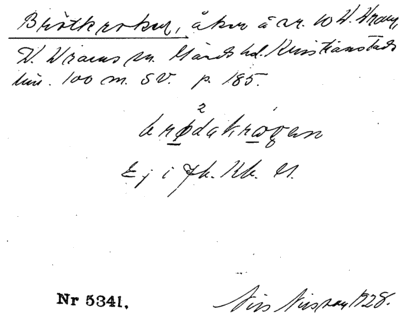 Brötkroken, åker å nr. 10 V. Vram,
V. Vrams sn. Gärds hd. Kristianstads
län. 100 m. SV. p. 185.
2
brødakrogen
Ej i Jk. Kk. U.
Nr 5341. Nils Nilsson 1928.